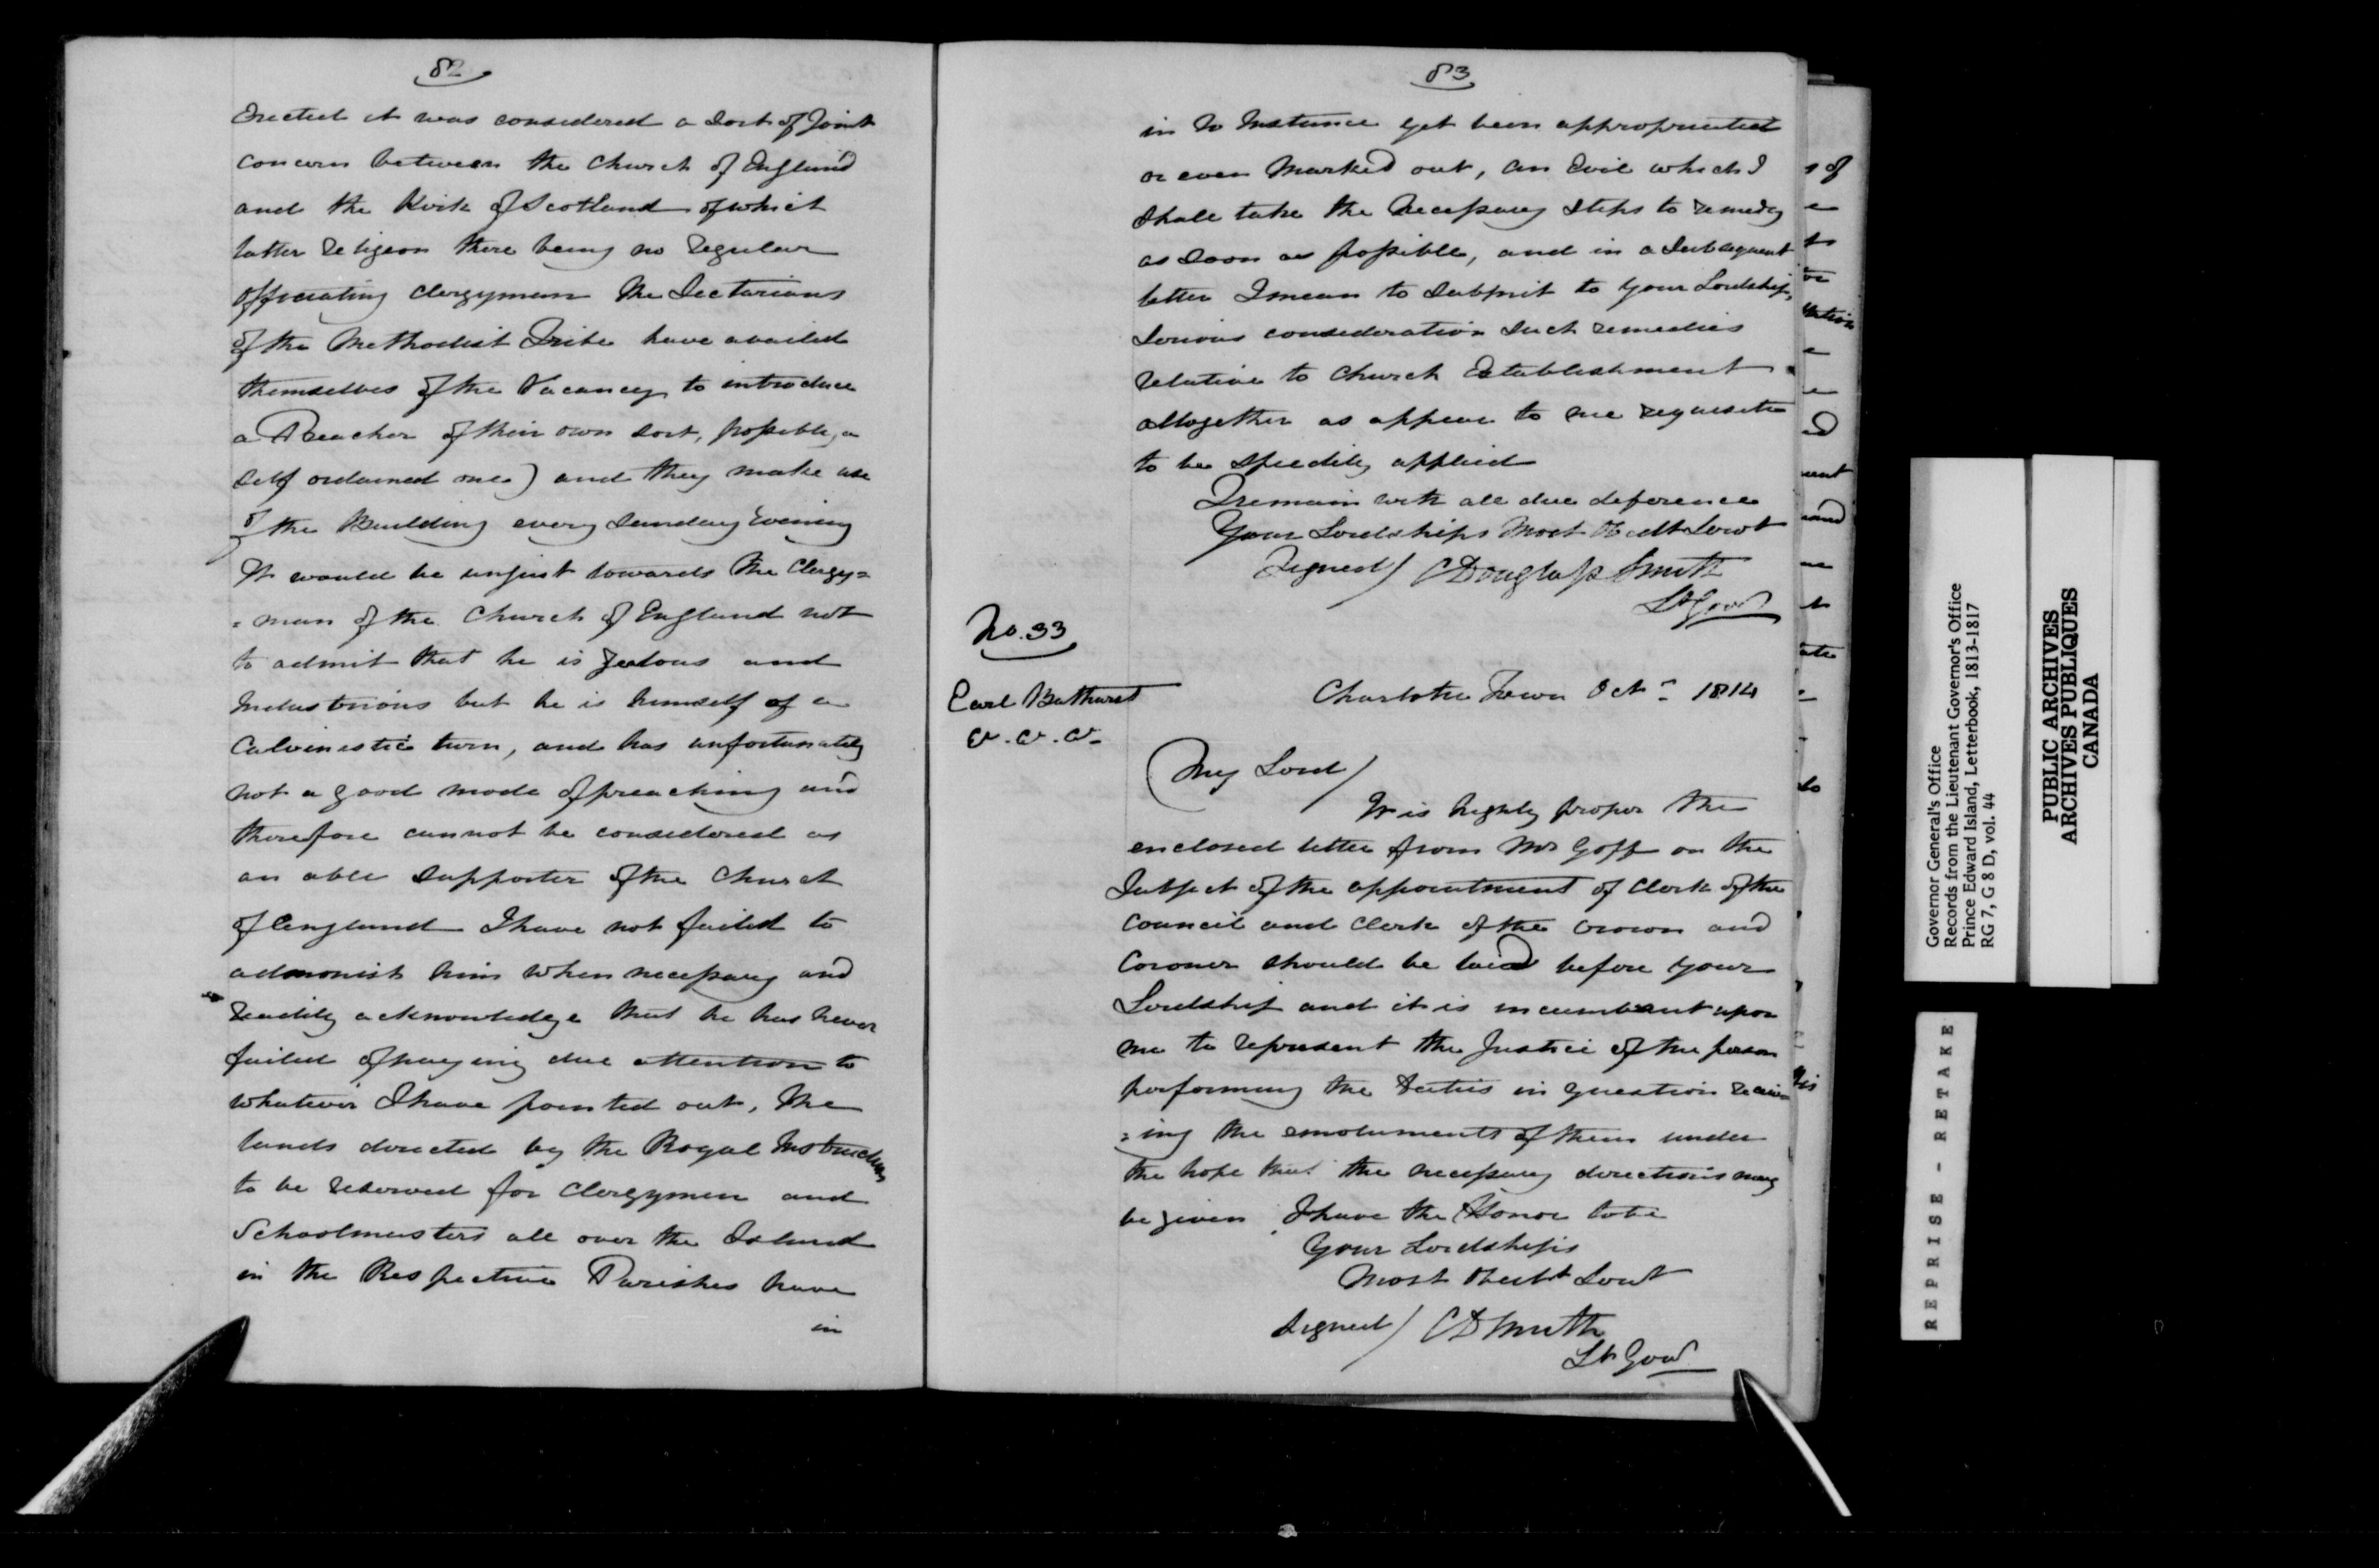 82
Erected it was considered a Sort of Joint
concern between the Church of England
and the Kirk of Scotland of which
latter Religeon there being no Regular
officiating Clergyman The Sectarians
of the Methodist Tribe have availed
themselves of the Vacancy to introduce
a Preacher of their own sort, possibly, a
self ordained one) and they make use
of the Building every Sunday Evening
It would be unjust towards the Clergy=
=man of the Church of England not
to admit that he is Zealous and
Industrious but he is himself of a
Calvinistic turn, and has unfortunately
not a good mode of preaching and
therefore cannot be considered as
an able Supporter of the Church
of England I have not failed to
admonish him when necessary and
Readily acknowledge that he has never
failed of paying due attention to
whatever I have pointed out, The
lands directed by the Royal Instructions
to be Reserved for Clergymen and
Schoolmasters all over the Island
in the Respective Parishes have
in
83
in no Instance yet been appropriated
or even Marked out, an Evil which I
Shall take the Necessary Steps to remedy
as Soon as possible, and in a Subsequent
letter I mean to Submit to your Lordships
Serious consideration Such remedies
relative to Church Establishment
altogether as appear to me requisite
to be Speedily applied
I remain with all due deference
Your Lordships Most Obedt Servt
Signed / C Douglass Smith
Lt Govr
No. 33
Earl Bathurst
&. &. &.
Charlotte Town Octr 1814
My Lord /
It is highly proper the
enclosed letter from Mr Goff on the
Subject of the appointment of Clerk of the
Council and Clerk of the Crown and
Coroner should be laid before your
Lordship and it is incumbent upon
me to represent the Justice of the person
performing the Duties in question receiv=
=ing the emoluments of them under
the hope that the necessary directions may
be given I have the Honor to be
Your Lordships
Most Obedt Servt
Signed / C D Smith
Lt Govr
Governor General's Office
Records from the Lieutenant Governor's Office
Prince Edward Island, Letterbook, 1813-1817
RG 7, G 8 D, vol. 44
PUBLIC ARCHIVES
ARCHIVES PUBLIQUES
CANADA
REPRISE - RETAKE